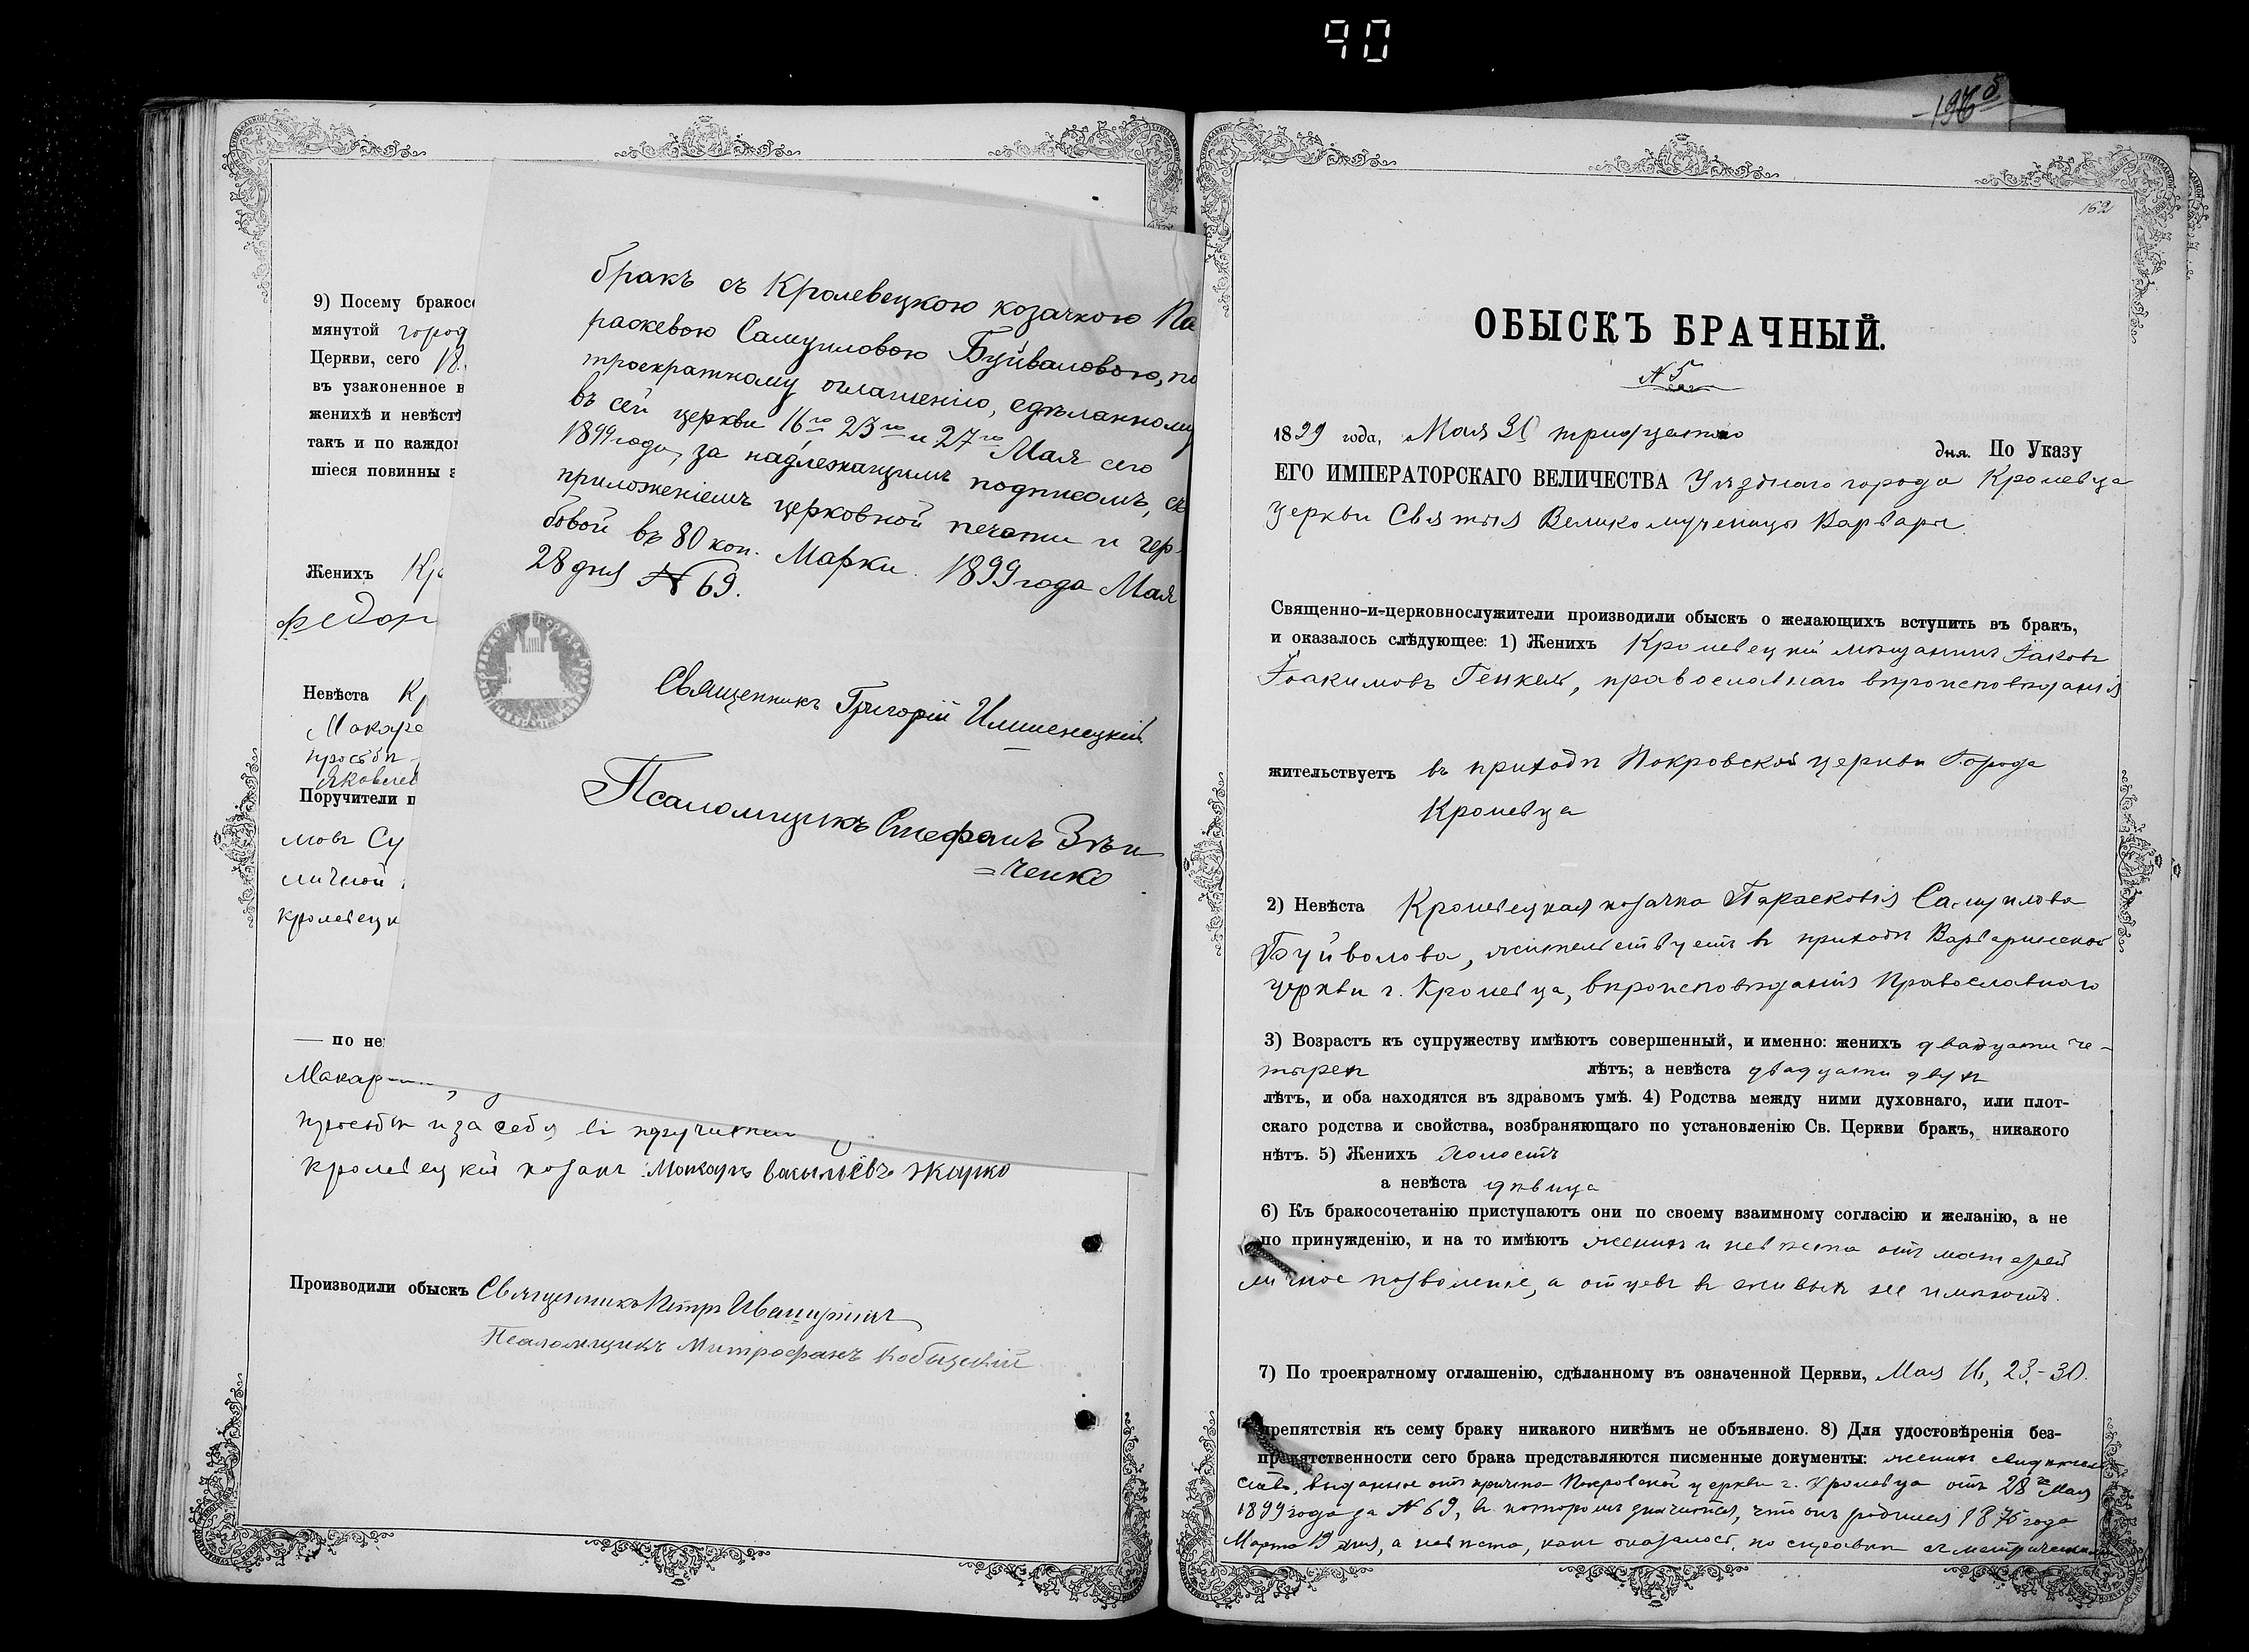 90
196
9) Посему бракосо
мянутой город
Церкви, сего 18
въ узаконенное в
женихѣ и невѣстѣ
такъ и по каждом
шіеся повинны
Женихъ Кро
Федор
Невѣста Кр
Макаре
просьбѣ
Яковлев
Поручители п
мовъ Су
личной
Кролевецк
— по не
Макар
просьбѣ и за себя
Кролевецкій козакъ Макаръ Васильевъ Жарко
Производили обыскъ Священникъ Петръ
Псаломщикъ Митрофанъ
бракъ съ Кролевецкою козачкою Па
раскевою Самуиловою Буйваловою, по
троекратному оглашенію, сдѣланному
въ сей церкви 16го 23го и 27го Мая сего
1899 года, за надлежащимъ подписомъ, съ
приложеніемъ церковной печати и гер-
бовой въ 80 коп. Марки. 1899 года Мая
28 дня № 69.
Священникъ Григорій Имшенецкій.
Псаломщикъ Стефанъ Зѣн
=ченко
162
ОБЫСКЪ БРАЧНЫЙ.
№ 5
1899 года, Мая 31 дня. По Указу
ЕГО ИМПЕРАТОРСКАГО ВЕЛИЧЕСТВА Уѣзднаго города Кролевца
церкви Святыя Великомученицы Варвары.
Священно-и-церковнослужители производили обыскъ о желающихъ вступить въ бракъ,
и оказалось слѣдующее: 1) Женихъ Кролевецкій мѣщанинъ Іаковъ
Іоакимовъ Генкель, православнаго вѣроисповѣданія
жительствуетъ въ приходѣ Покровской церкви города
Кролевца
2) Невѣста Кролевецкая козачка Параскевія Самуилова
Буйволова, жительствуетъ въ приходѣ Варваринской
церкви г. Кролевца, вѣроисповѣданія Православнаго
3) Возрастъ къ супружеству имѣютъ совершенный, и именно: женихъ двадцати че-
тырехъ лѣтъ; а невѣста двадцати двухъ
лѣтъ, и оба находятся въ здравомъ умѣ. 4) Родства между ними духовнаго, или плот-
скаго родства и свойства, возбраняющаго по установленію Св. Церкви бракъ, никакого
нѣтъ. 5) Женихъ холостъ
а невѣста дѣвица
6) Къ бракосочетанію приступаютъ они по своему взаимному согласію и желанію, а не
по принужденію, и на то имѣютъ женихъ и невѣста отъ матерей
личное позволеніе, а отцевъ въ живыхъ не имѣютъ.
7) По троекратному оглашенію, сдѣланному въ означенной Церкви, Мая 16, 23, - 30.
препятствія къ сему браку никакого никѣмъ не объявлено. 8) Для удостовѣренія без-
препятственности сего брака представляются писменные документы: женихъ свидѣтель
ство, выданное отъ причта Покровской церкви г. Кролевца отъ 28го Мая
1899 года за № 69, въ которомъ значится, что онъ родился 1875 года
Марта 19 дня, а невѣста, какъ оказалось, по справкѣ съ метрическими